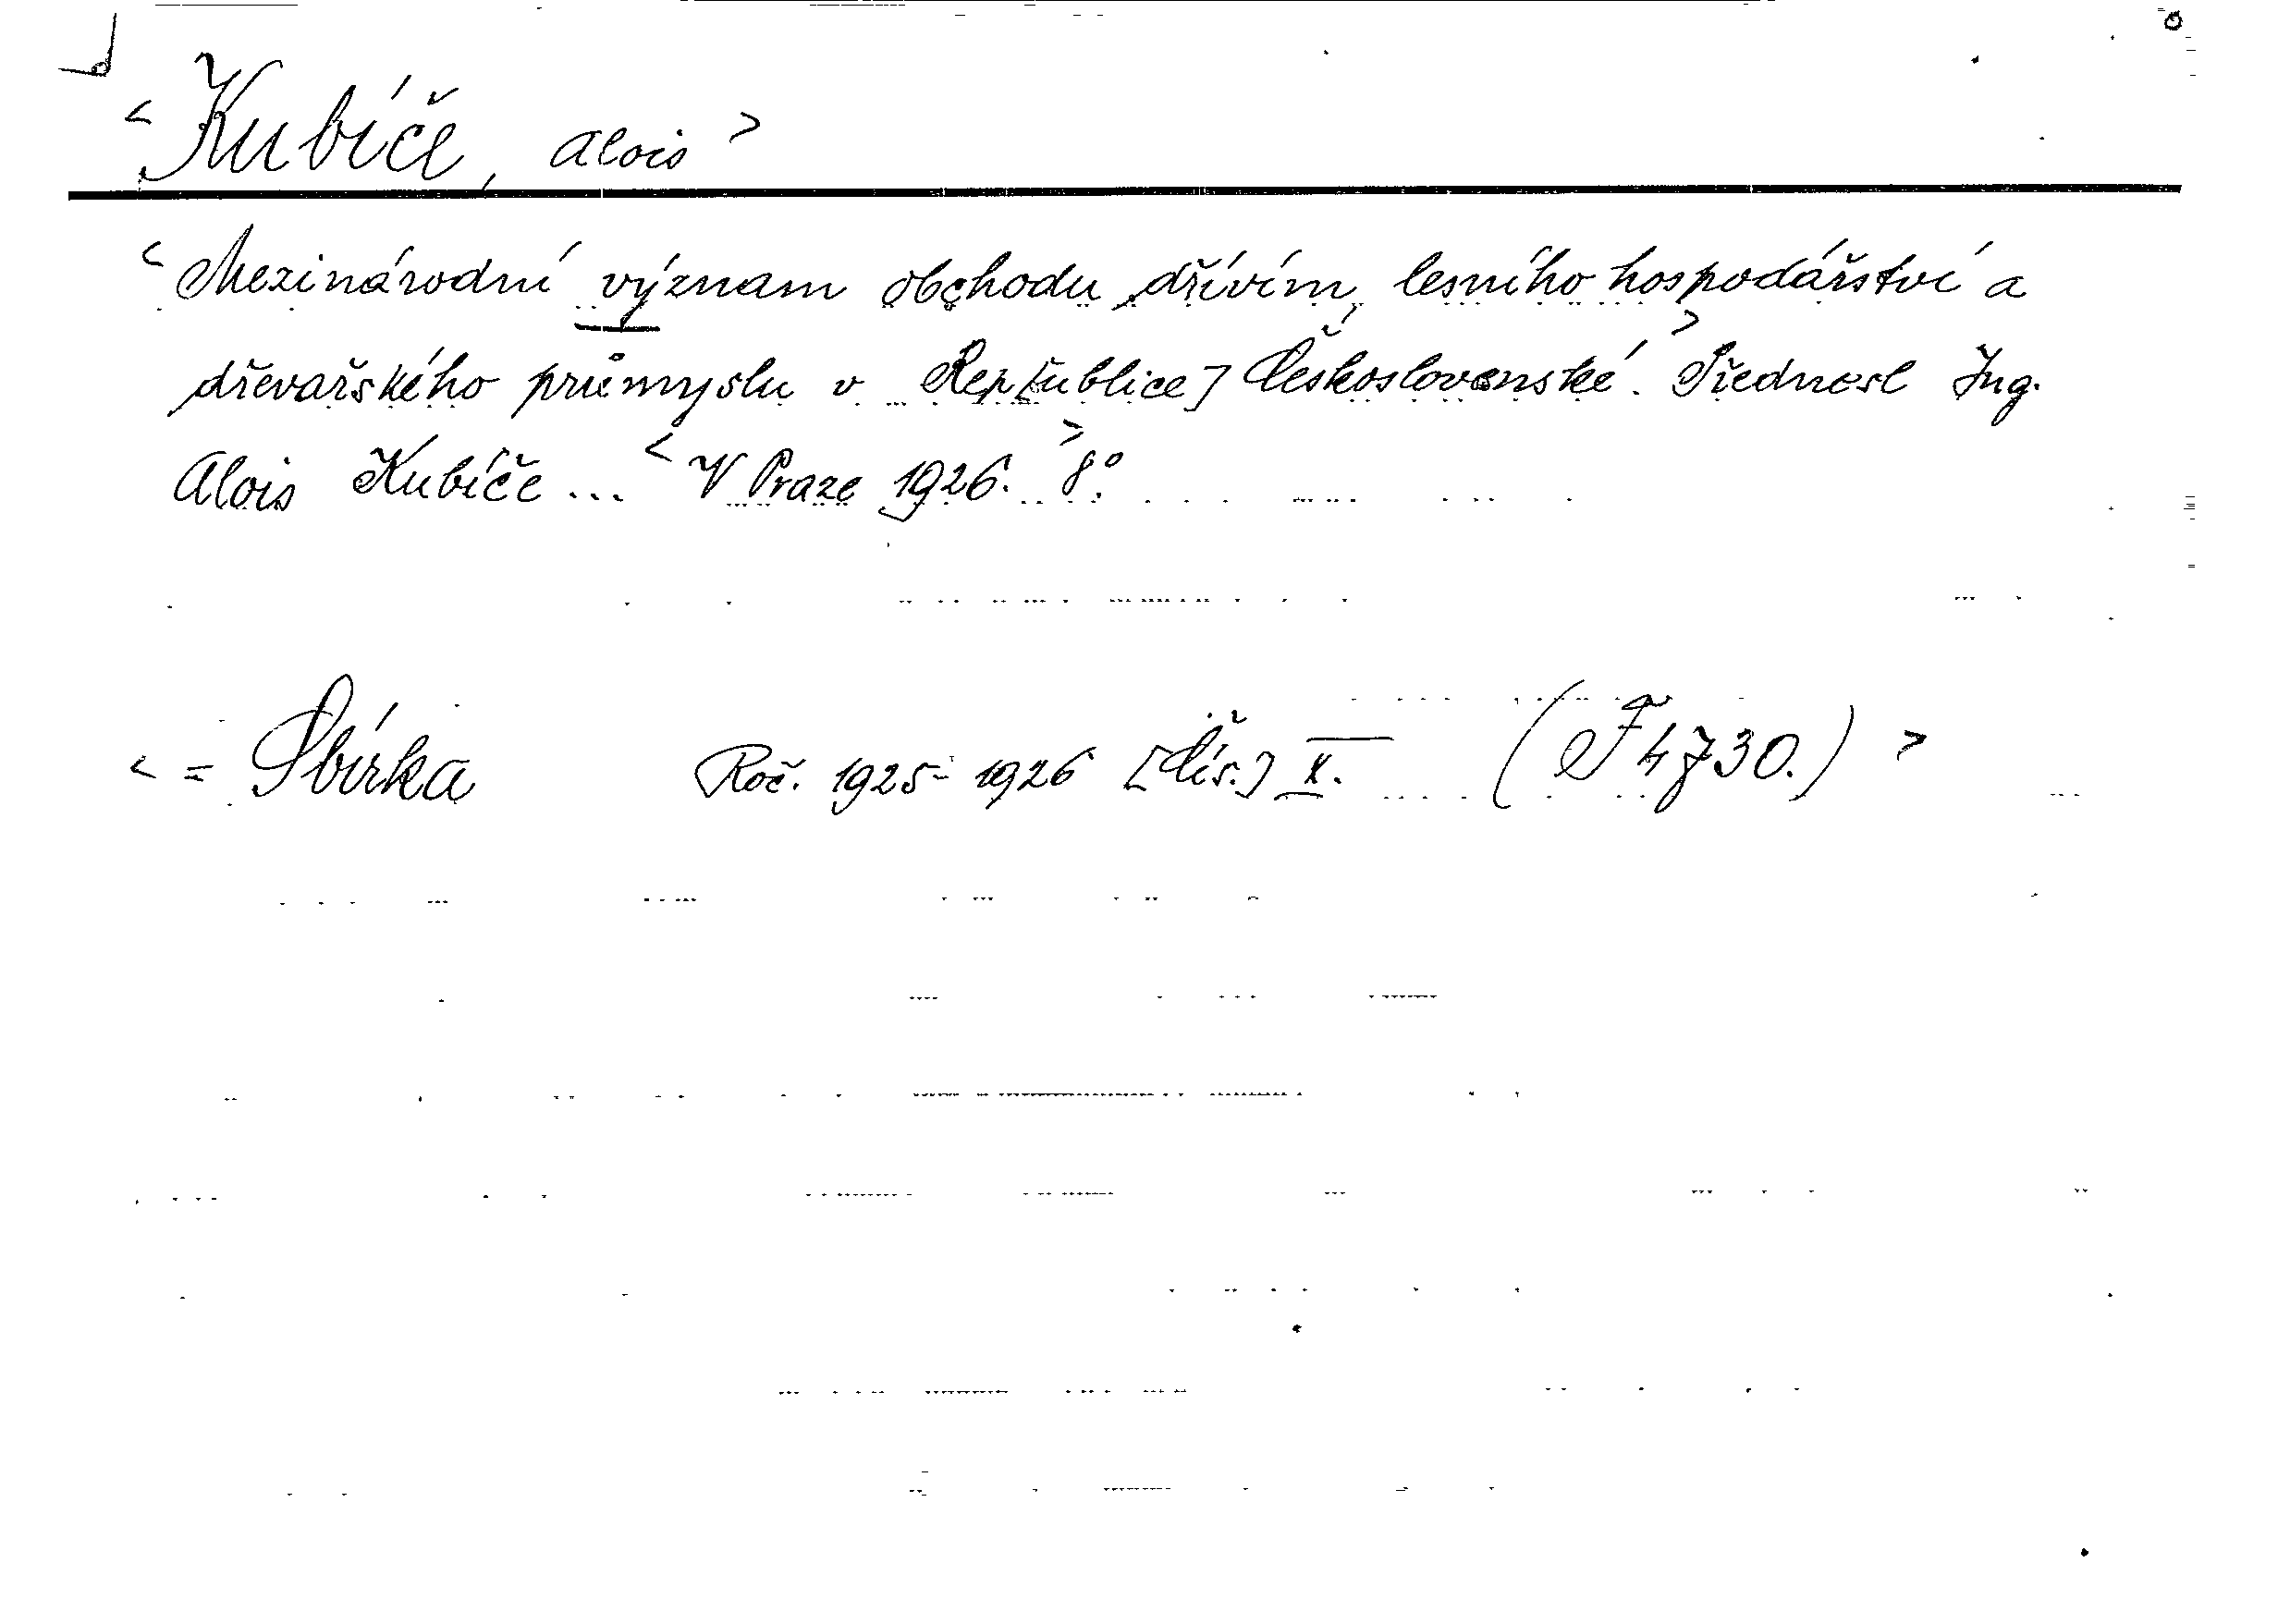 < Kubíče, Alois >
< Mezinárodní význam obchodu dřívím, lesního hospodářství a
dřevařského průmyslu v Rep[ublice] Československé. > Přednesl Ing.
Alois Kubíče ... < V Praze 1926. > 8°.
< = Sbírka Roč. 1925-1926 [Čís.] X. (F 4730.) >